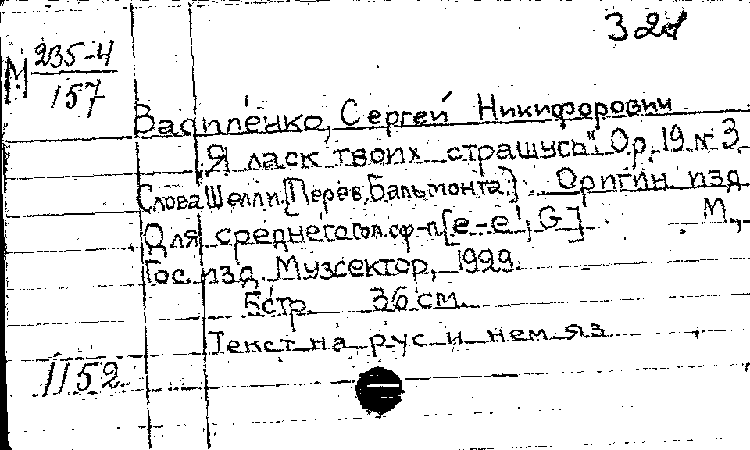 321
М 235-4
157
Василенко, Сергей Никифорович
"Я ласк твоих страшусь". Op. 19 № 3
Слова Шелли. [Перев. Бальмонта]. Оригин. изд.
Для среднего гол. с ф-п. [e-e¹, G] М.,
Гос. изд. Музсектор, 1929.
5 стр. 36 см.
Текст на рус. и нем. яз.
1152